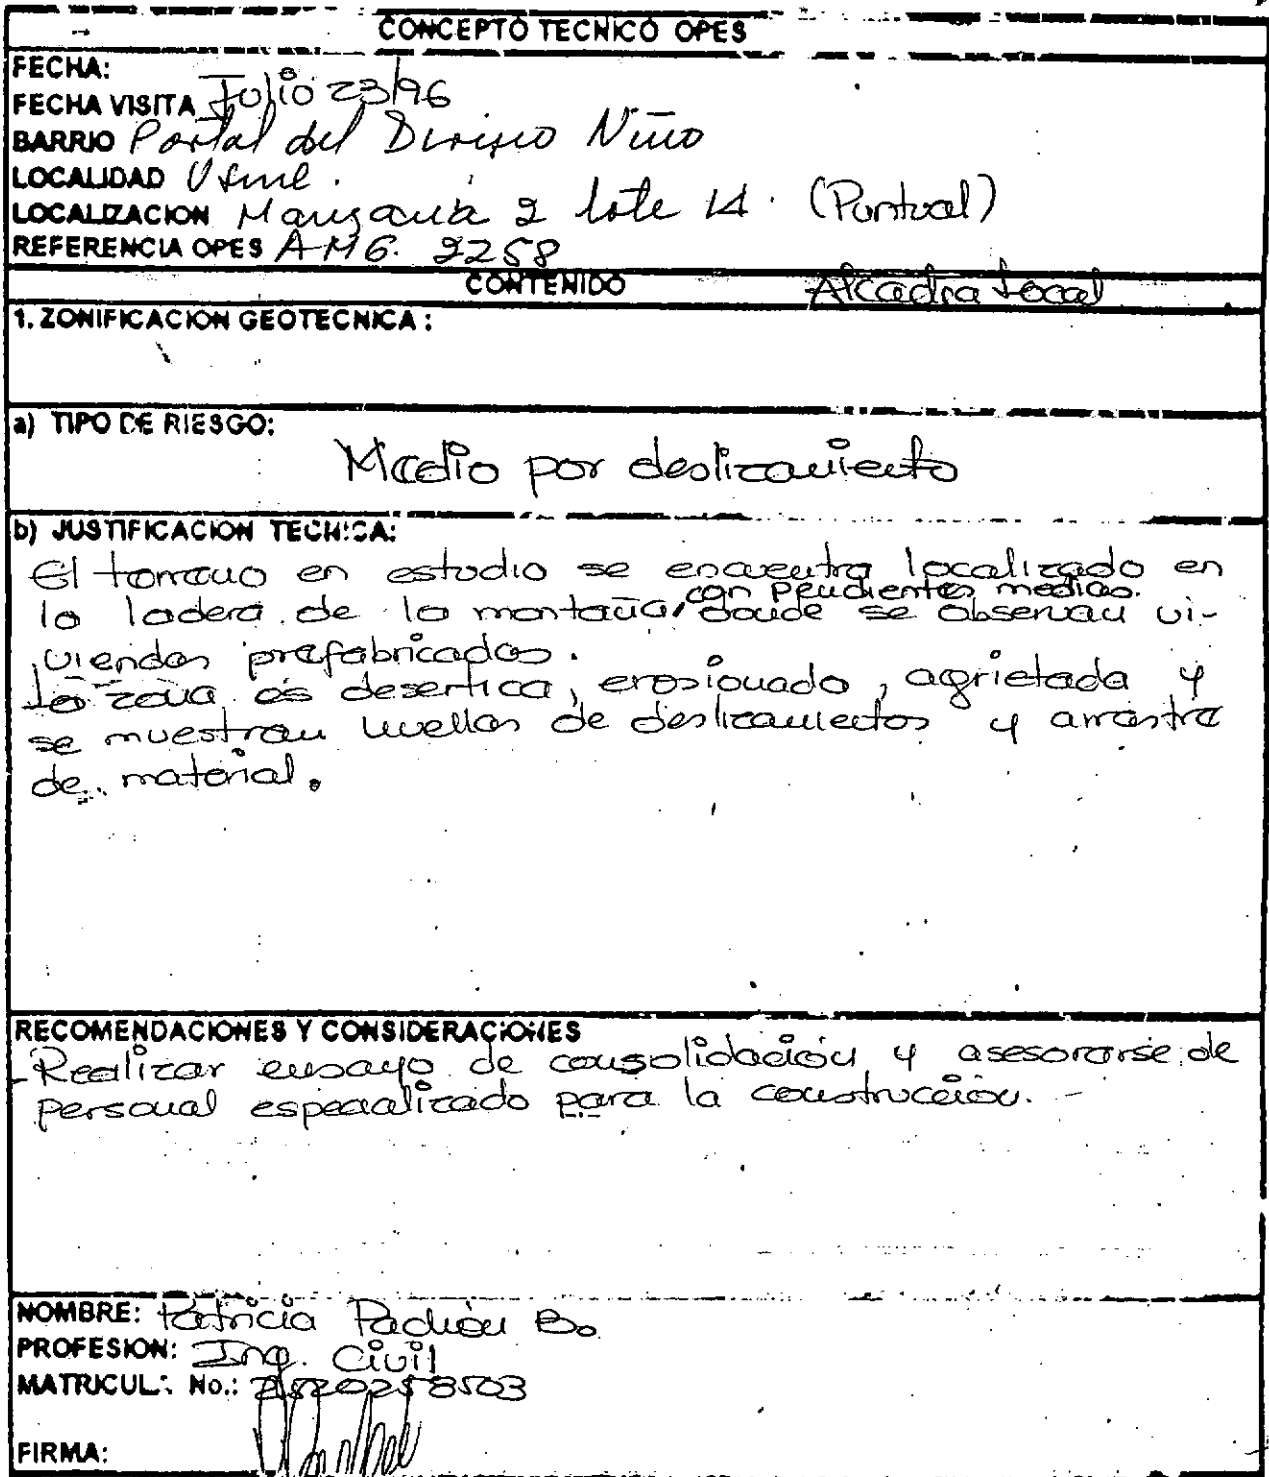 CONCEPTO TECNICO OPES
FECHA:
FECHA VISITA Julio 23/96
BARRIO Portal del Divino Niño
LOCALIDAD Usme.
LOCALIZACION Manzana 2 lote 14. (Puntual)
REFERENCIA OPES AMG. 2258
CONTENIDO Alcadia Local
1. ZONIFICACION GEOTECNICA:
a) TIPO DE RIESGO:
Medio por deslizamiento
b) JUSTIFICACION TECNICA:
El terreno en estudio se encuentra localizado en
con pendientes medias.
la ladera de la montaña, donde se observan vi-
viendas prefabricadas.
La zona es desertica, erosionada, agrietada y
se muestran huellas de deslizamientos y arrastre
de material.
RECOMENDACIONES Y CONSIDERACIONES
- Realizar ensayo de consolidación y asesorarse de
personal especializado para la construcción. -
NOMBRE: Patricia Pachón B.
PROFESION: Ing. Civil
MATRICULA No.: 2520258503
FIRMA: